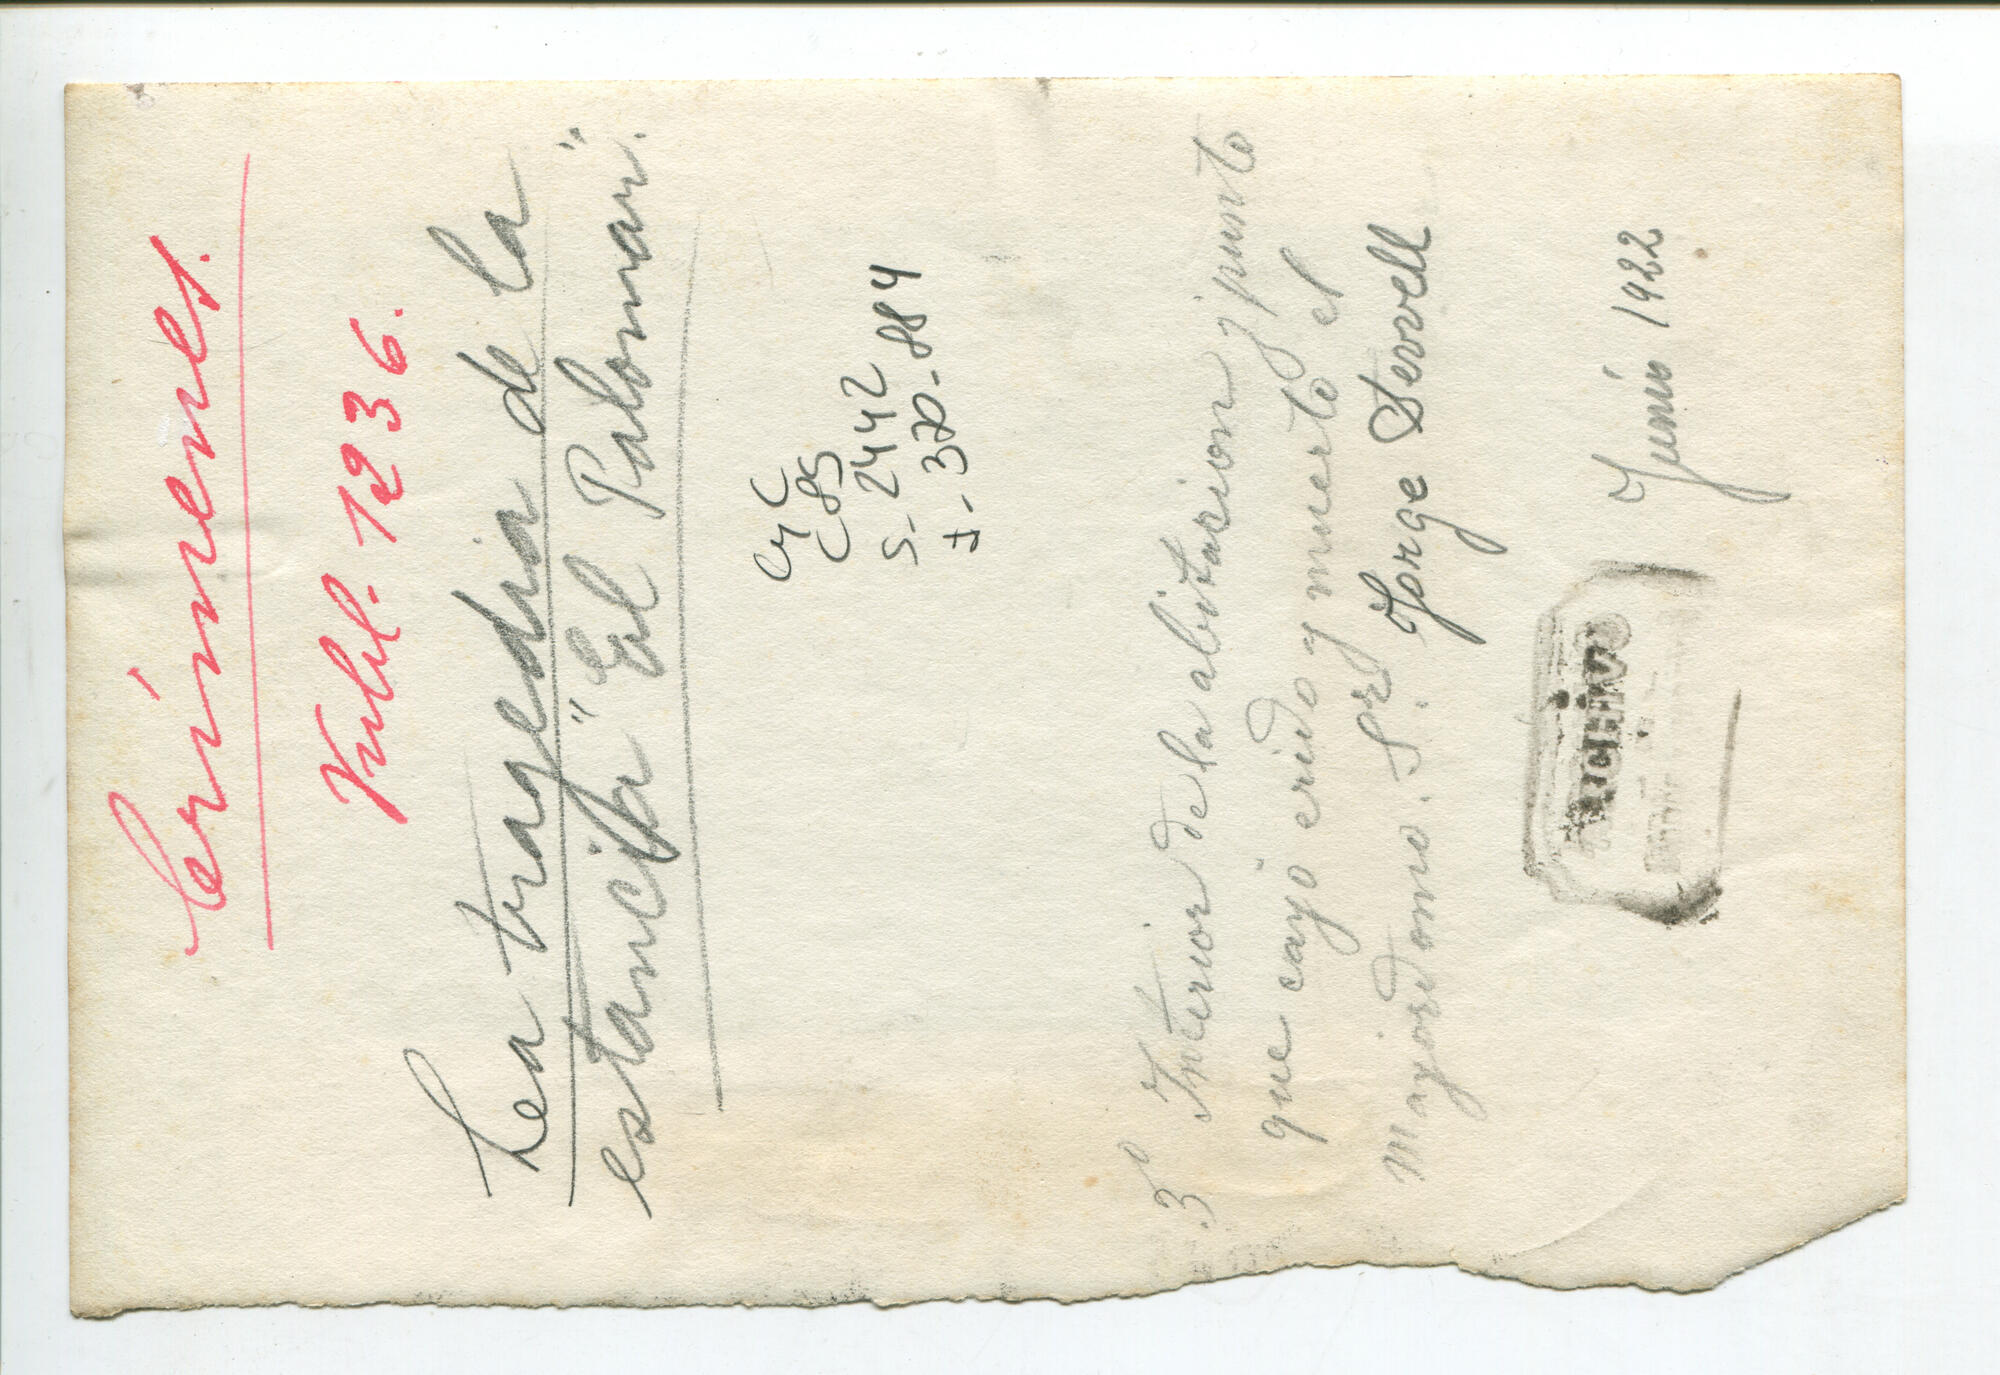 Crímenes.
Publ. 1236.
La tragedia de la
estancita "El Palomar".
CyC
C85
S-2442
J-370-884
3º Interior de la abitacion y punto
que cayo erido y muerto el
mayordomo. Sr. Jorge Sewell
Junio 1922
ARCHIVO